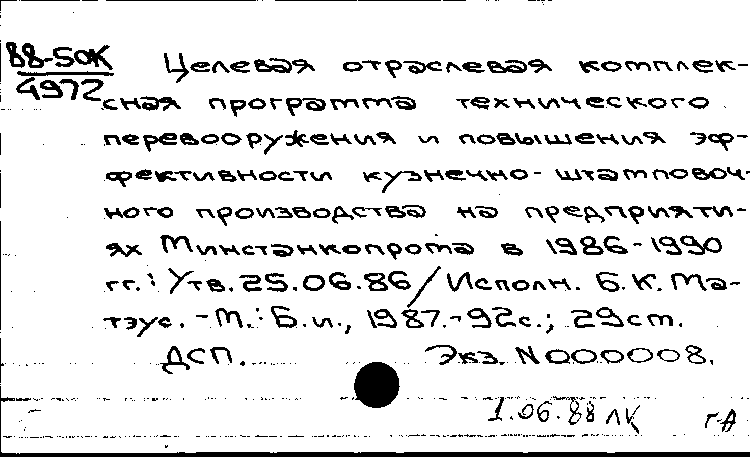 88-50К
4972
Целевая отраслевая комплек-
сная программа технического
перевооружения и повышения эф-
фективности кузнечно-штамповоч-
ного производства на предприяти-
ях Минстанкопрома в 1986-1990
гг.: Утв. 25.06.86/Исполн. Б.К. Ма-
тэус. - М.: Б.и., 1987.-92с.; 29см.
ДСП. Экз. N000008.
1.06.88 ЛК гА